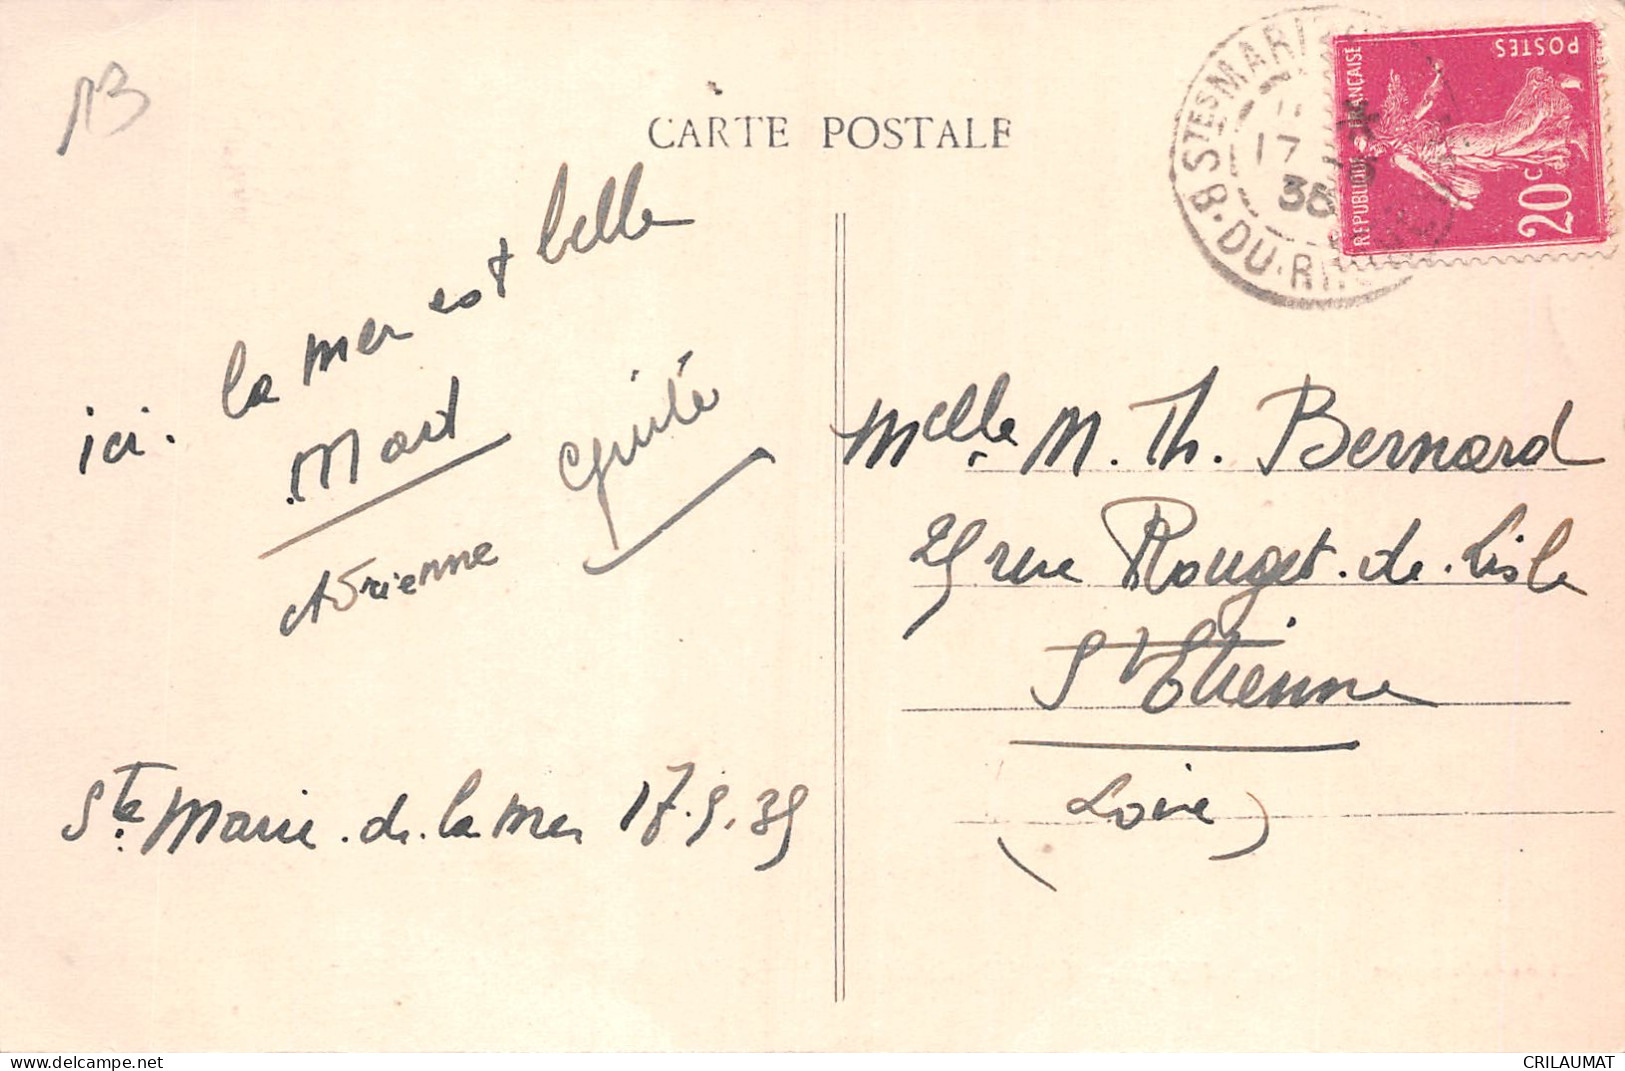 13
CARTE POSTALE
STES MARI
11
17
38
B. DU. RH
POSTES
REPUBLIQUE FRANÇAISE
20c
ici. la mer est belle
Adrienne
Ste Marie.de.la mer 17.9.39
Melle M. Th. Bernard
29 rue Rouget.de.Lisle
St Etienne
(Loire)
www.delcampe.net
CRILAUMAT